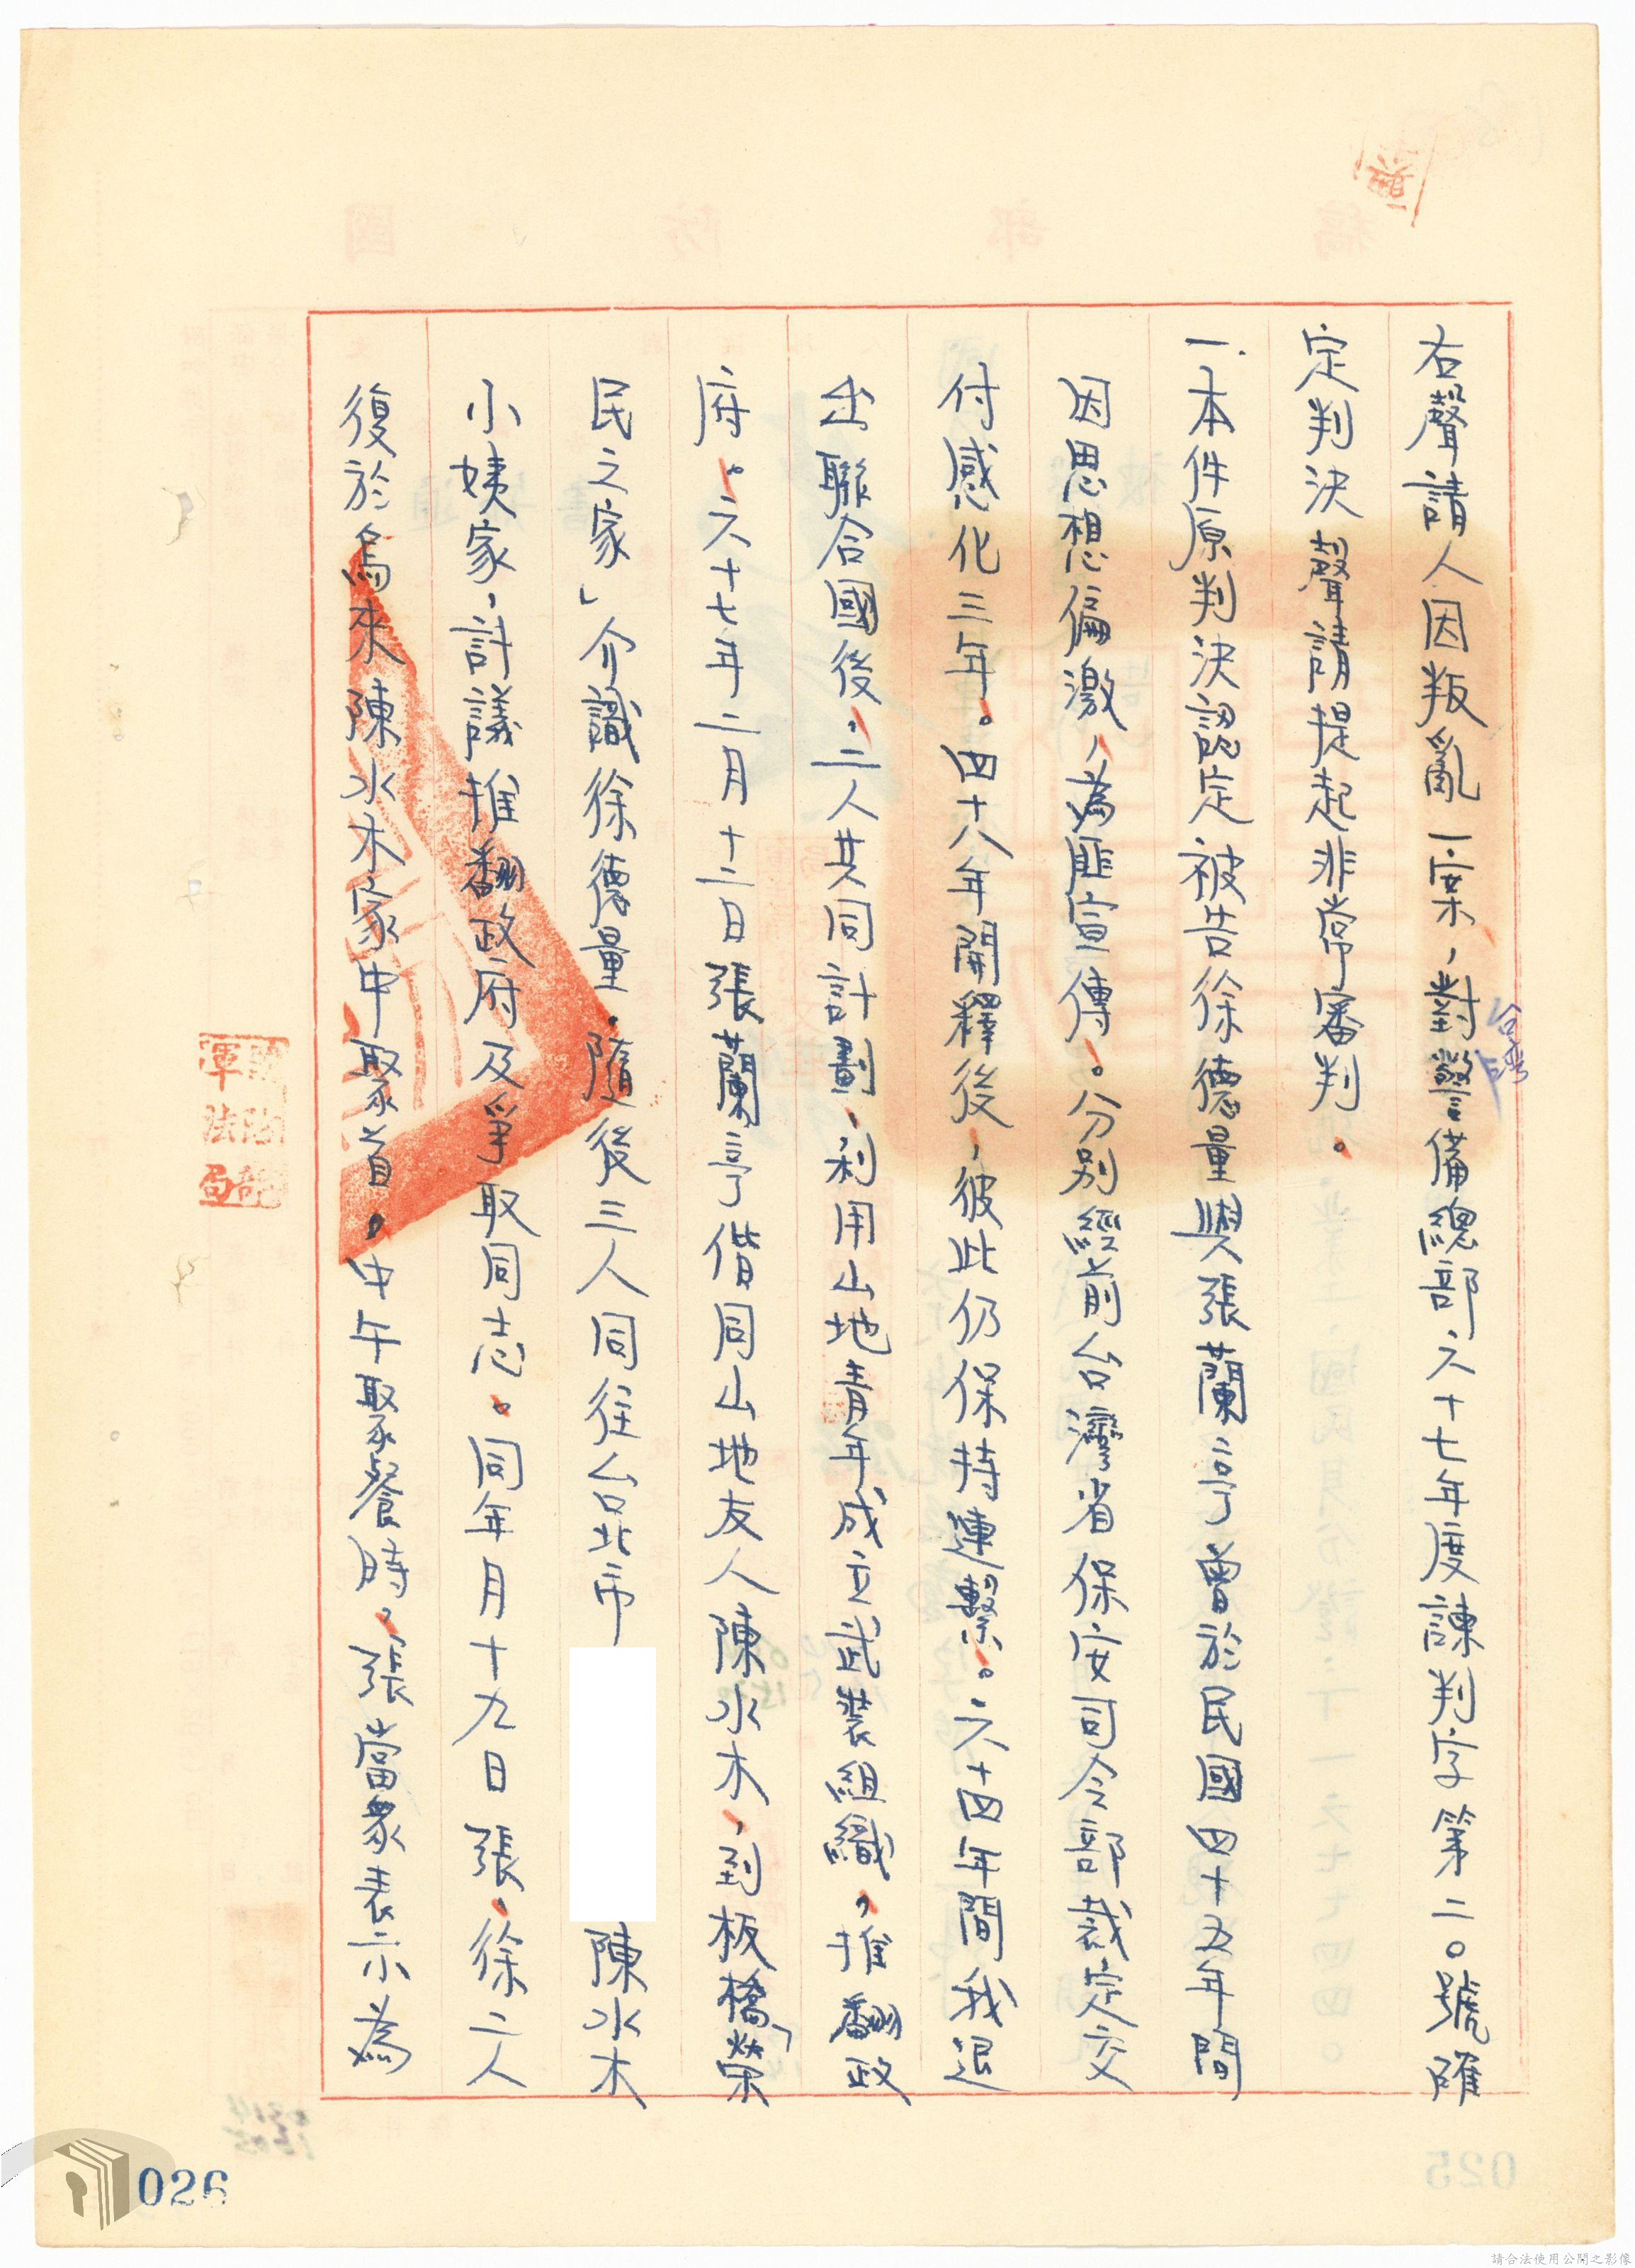 右聲請人因叛亂一案，對警備總部六十七年度諫判字第二〇號確
台灣
定判決聲請提起非常審判。
一.本件原判決認定被告徐德量與張蘭亭曾於民國四十五年間
因思想偏激，為匪宣傳。分別經前台灣省保安司令部裁定交
付感化三年。四十八年開釋後，彼此仍保持連繫。六十四年間我退
出聯合國後，二人共同計劃，利用山地青年成立武裝組織，推翻政
府。六十七年二月十二日張蘭亭偕同山地友人陳水木，到板橋「榮
民之家」介識徐德量，隨後三人同往台北市 陳水木
小姨家，計議推翻政府及爭取同志。同年月十九日張，徐二人
復於烏來陳水木家中聚首。中午聚餐時，張當眾表示為
國防部
軍法局
稿部防國
026
025
請合法使用公開之影像